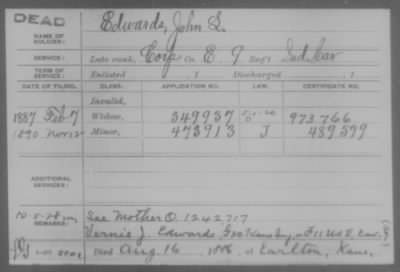 DEAD
NAME OF SOLDIER: Edwards, John L.
SERVICE: Late rank, Corp Co. E, 9 Reg't Ind. Cav
TERM OF SERVICE: Enlisted , 1 Discharged , 1
DATE OF FILING. CLASS. APPLICATION NO. LAW. CERTIFICATE NO.
Invalid,
1887 Feb 7 Widow, 349937 973766
1890 Nov 12 Minor, 473913 J 489599
ADDITIONAL SERVICES:
10-5-28 REMARKS: See Mother O. 1242717
Vernie J. Edwards, F 11 U.S.V. Cav.
Died Aug 16, 1886, at Earlton, Kans,